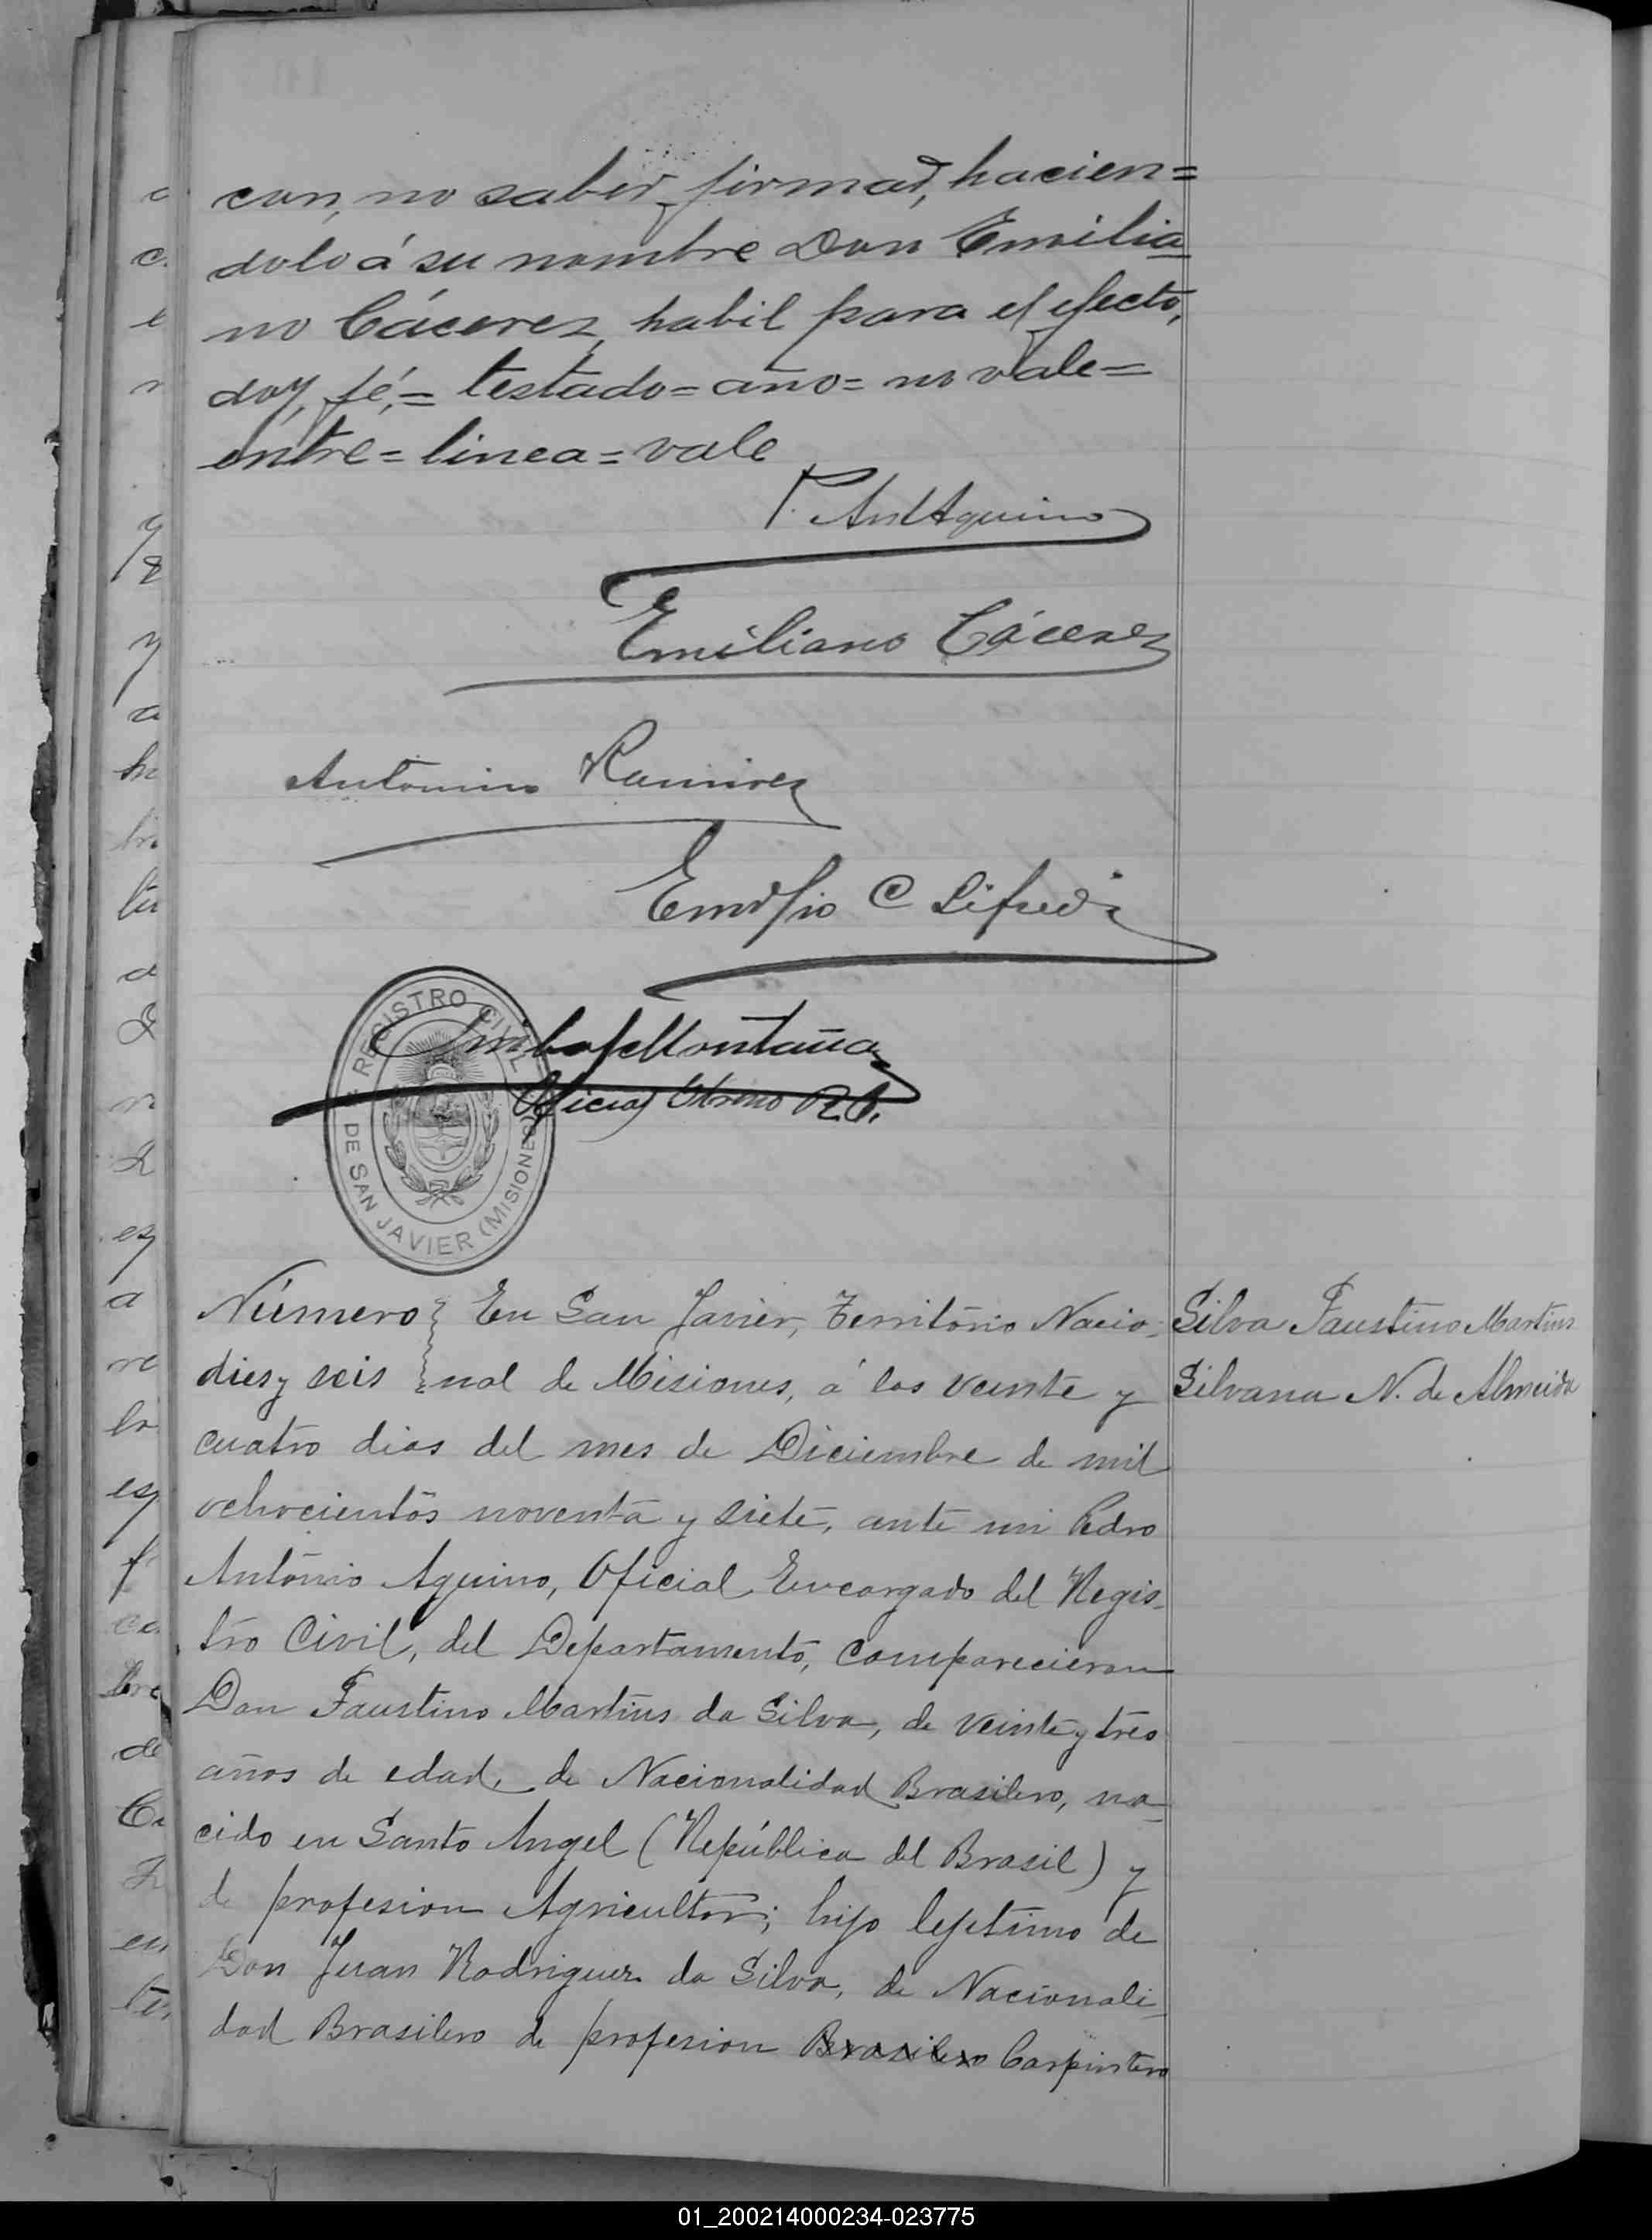 can, no saber firmar, hacien=
dolo á su nombre Don Emilia=
no Cáceres, habil para el efecto,
doy, fé,= testado=año= no vale=
entre=linea=vale
P. Ant Aquino
Emiliano Cáceres
Antonino Ramirez
Emilio C
Montaña
Oficial
REGISTRO CIVIL
DE SAN JAVIER (MISIONES)
Número En San Javier, Territorio Nacio-
dies y seis nal de Misiones, á los veinte y
cuatro dias del mes de Diciembre de mil
ochocientos noventa y siete, ante mi Pedro
Antonio Aquino, Oficial Encargado del Regis-
tro Civil, del Departamento, comparecieron
Don Faustino Martins da Silva, de veinte y tres
años de edad, de Nacionalidad Brasilero, na-
cido en Santo Angel (República del Brasil) y
de profesion Agricultor; hijo lejitimo de
Don Juan Rodriguez da Silva, de Nacionali-
dad Brasilero de profesion Brasilero Carpintero
Silva Faustino Martins
Silvana N. de Almeida
01_200214000234-023775